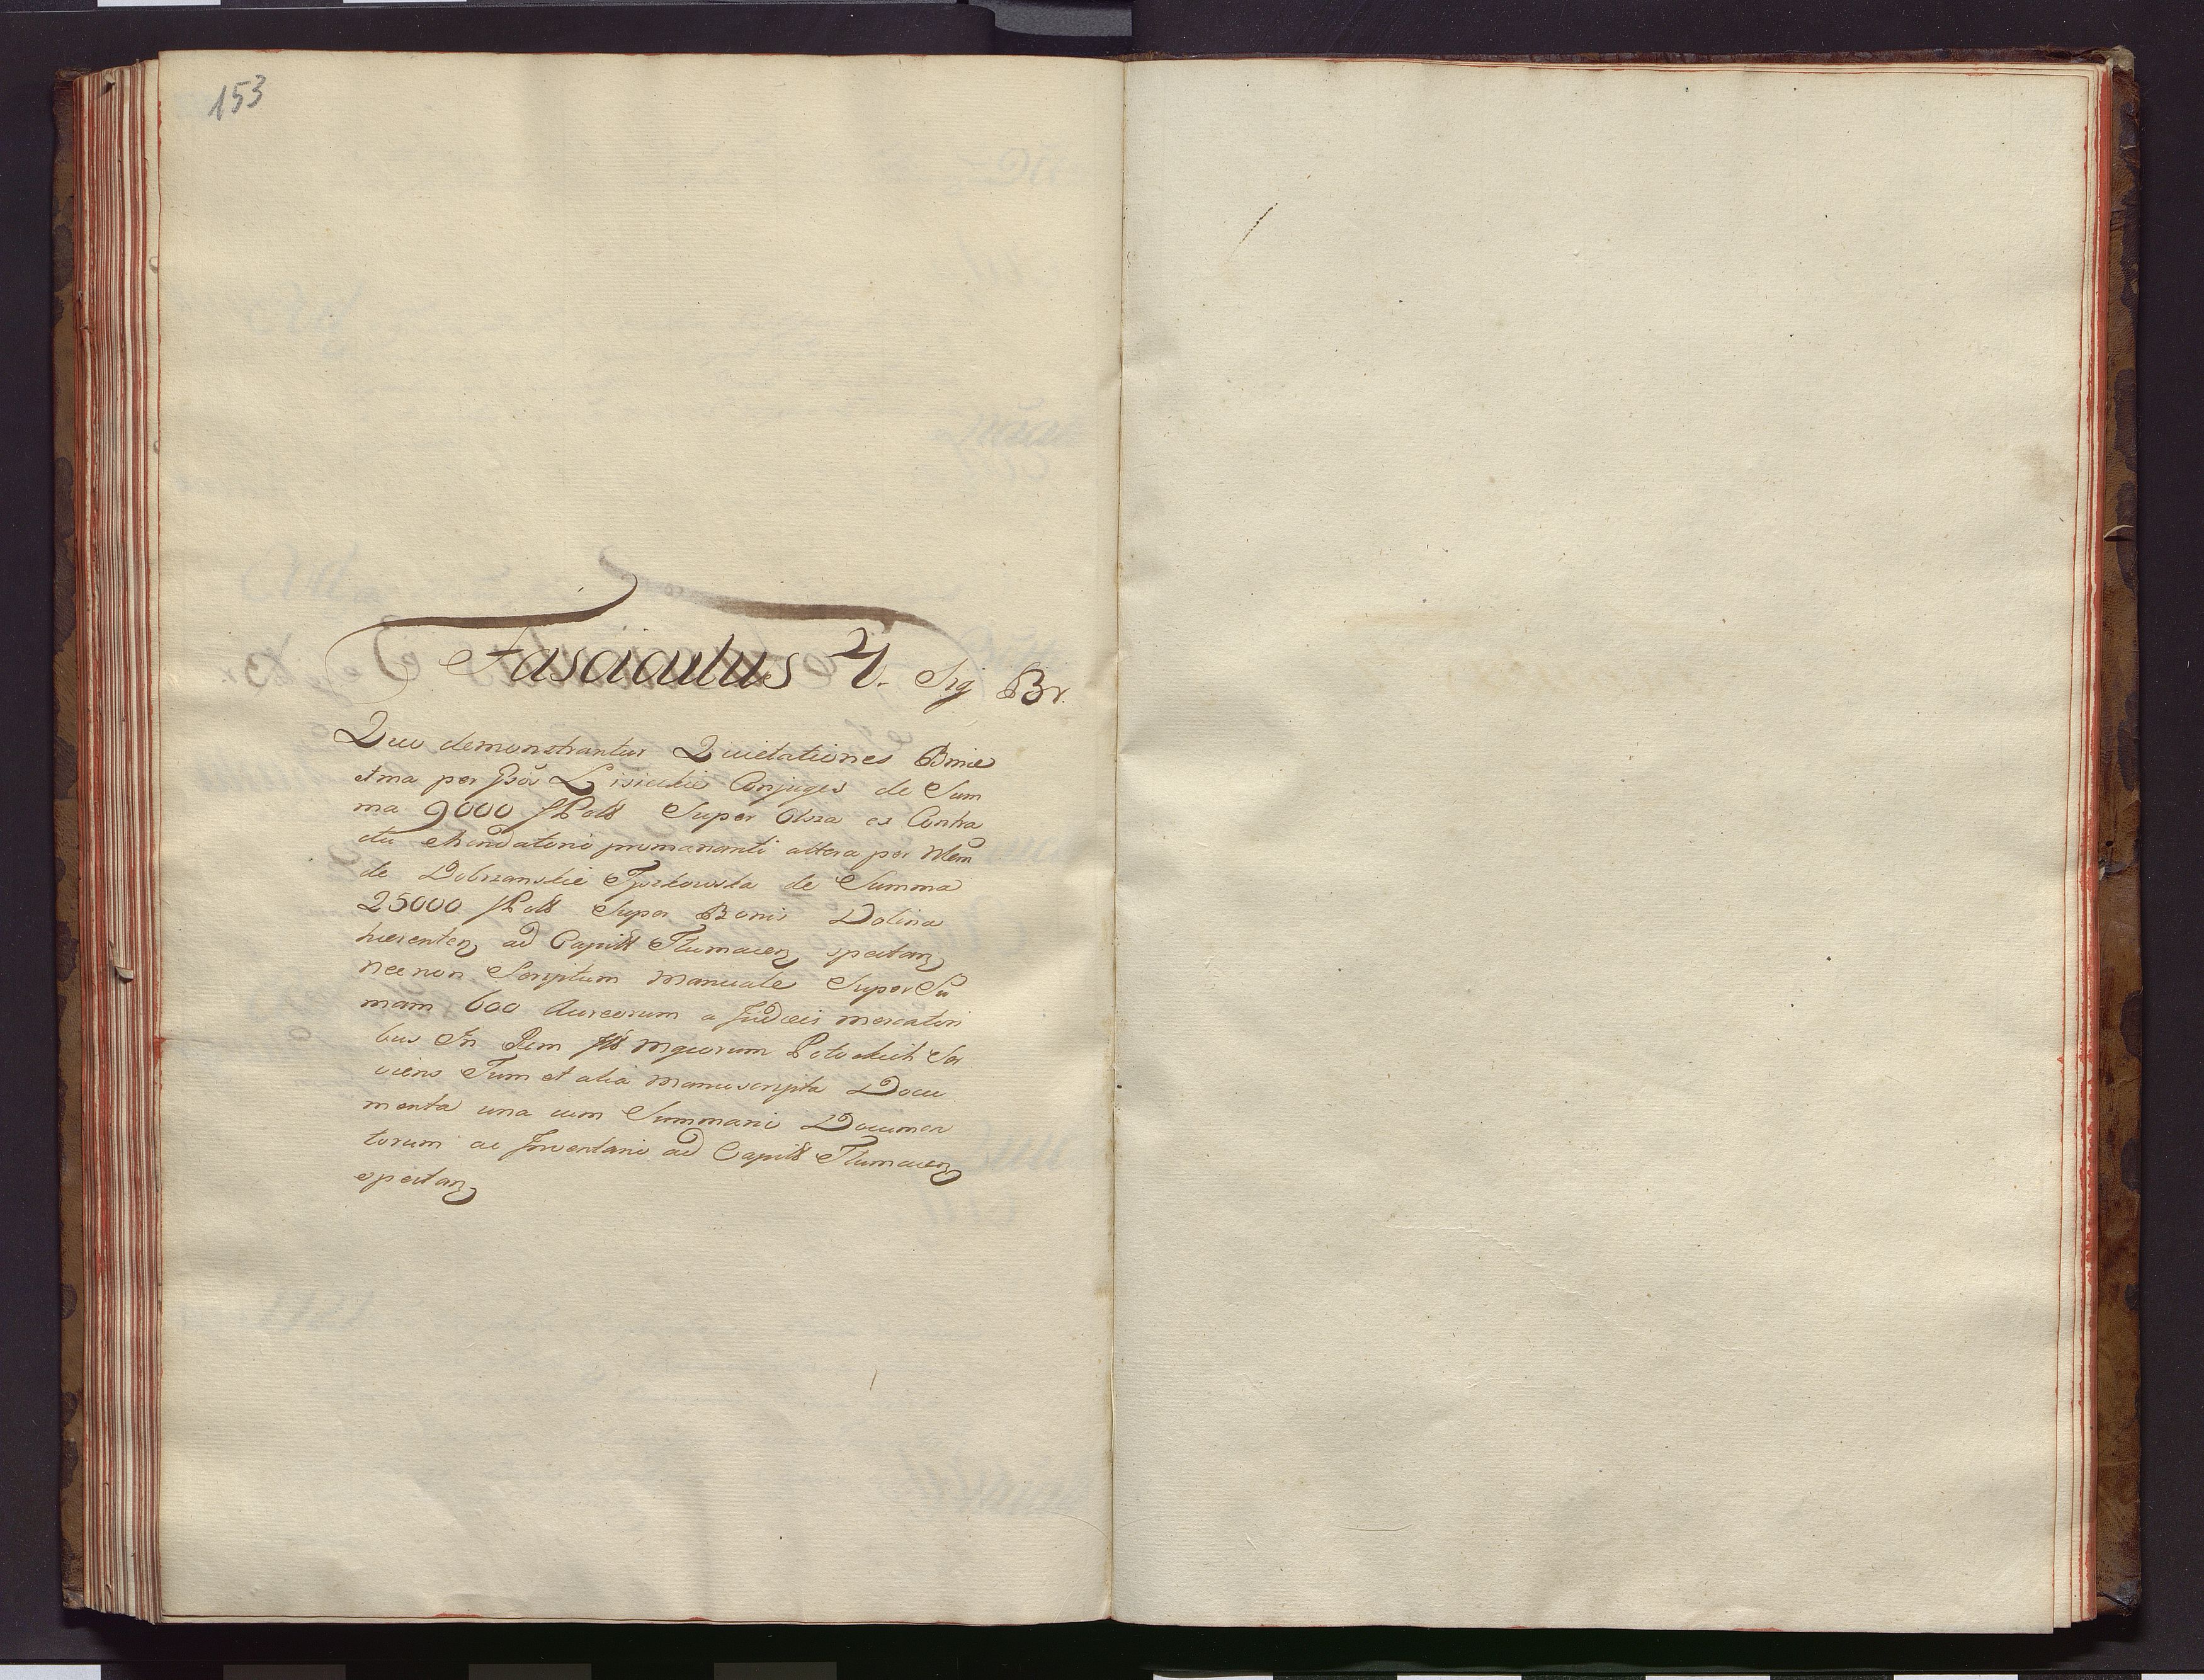 153
Fasciculus 21. Sig Br.
Quo demonstrantur Quietationes Binæ
una per Lisieckie Conjuges de Sum
ma 9000 Super ex Contra
ctu Arendatorio promananti altera per
de Dobrzanskie de Summa
25000 Super Bonis Dolina
hærenten ad Capitt Tłumacen spectan
nec non Scriptum manuale Super Su
mam 600 Aureorum a Judæis mercatori
bus In Rem Mgcorum Potockich Ser
viens Tum et alia manuscripta Docu
menta una cum Summario Documen
torum ac Inventario ad Capitt Tłumacen
spectan